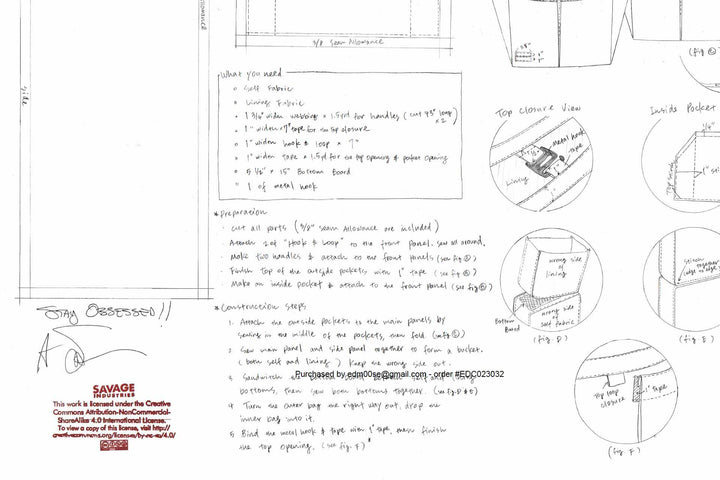 3/8 Seam Allowance
Side
Allowance
What you need
Self Fabric
Lining Fabric
1 3/16" widen webbing × 1.5 yd for handles (cut 43" long × 2)
1" widen × 7" tape for the top closure
1" widen hook & loop × 7"
1" widen Tape × 1.5 yd for the top opening & pocket opening
5 1/2" × 15" Bottom Board
1 of metal hook
* Preparation
- Cut all parts (3/8" seam Allowance are included)
- Attach 1 of "Hook & Loop" to the front panel. sew all around.
- Make two handles & attach to the front panels (see fig
- Finish Top of the outside pockets with 1" tape (see fig
- Make an inside pocket & attach to the front panel (see fig
* Construction Steps
1. Attach the outside pockets to the main panels by
sewing in the middle of the pockets, then fold.
2. Sew main panel and side panel together to form a bucket.
(both self and lining) Keep the wrong side out.
3. Sandwich the bottom board between self and lining
bottoms, then sew both bottoms together. (see fig. D & E)
4. Turn the outer bag the right way out, drop the
inner bag into it.
5. Bind the metal hook & tape with 1" tape, then finish
the top opening. (see fig. F)
Purchased by edm00se@gmail.com - order #EDC023032
Top closure View
Metal hook
tape
Lining
Inside Pocket
1/4"
1"
Top Stitch
wrong side of lining
wrong side of self fabric
Bottom Board
(fig. D)
Stitch together
(edge to edge)
(fig. E)
Top loop closure
1" tape
(fig. F)
STAY OBSESSED!!
SAVAGE
INDUSTRIES
This work is licensed under the Creative
Commons Attribution-NonCommercial-
ShareAlike 4.0 International License.
To view a copy of this license, visit http://
creativecommons.org/licenses/by-nc-sa/4.0/